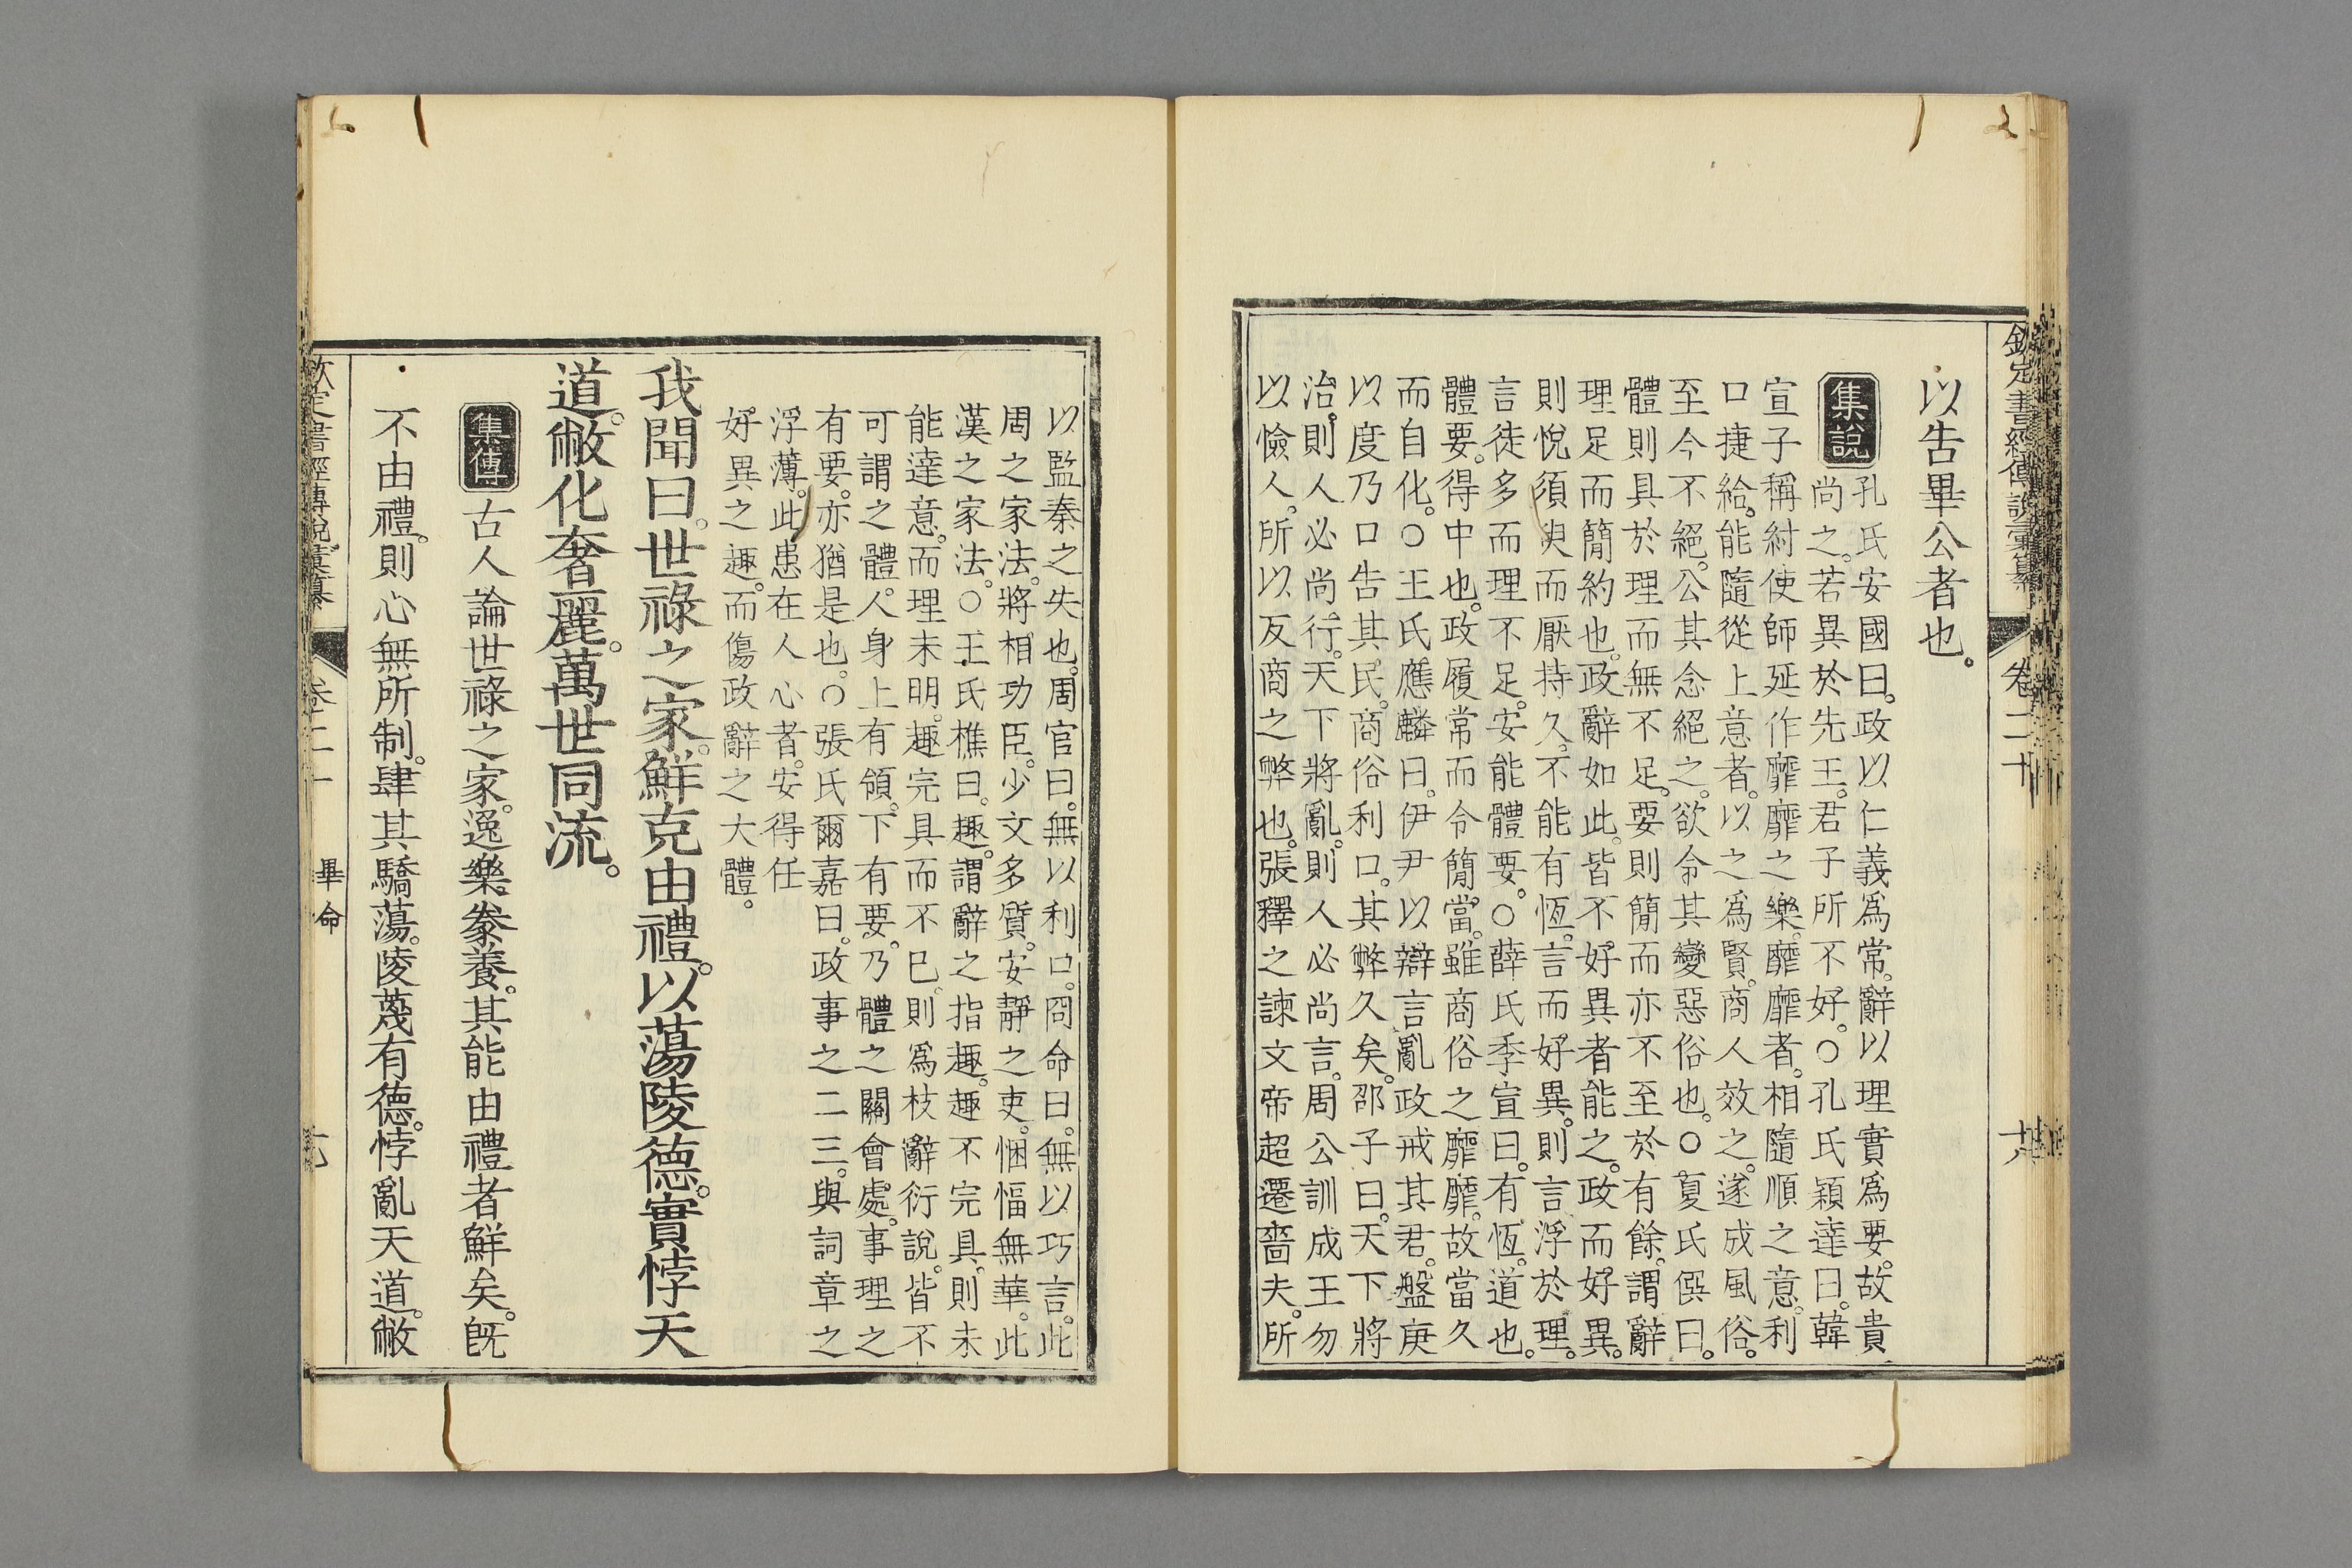 欽定書經傳說彙纂
卷二十
以告畢公者也。
集說
孔氏安國曰。政以仁義爲常。辭以理實爲要。故貴
尚之。若異於先王。君子所不好。○孔氏穎達曰。韓
宣子稱紂使師延作靡靡之樂。靡靡者。相隨順之意。利
口捷給。能隨從上意者。以之爲賢。商人效之。遂成風俗。
至今不絕。公其念絕之。欲令其變惡俗也。○夏氏僎曰。
體則具於理而無不足。要則簡而亦不至於有餘。謂辭
理足而簡約也。政辭如此。皆不好異者能之。政而好異。
則悅須臾而厭持久。不能有恆。言而好異。則言浮於理。
言徒多而理不足。安能體要。○薛氏季宣曰。有恆。道也。
體要。得中也。政履常而令簡當。雖商俗之靡靡。故當久
而自化。○王氏應麟曰。伊尹以辯言亂政戒其君。盤庚
以度乃口告其民。商俗利口。其弊久矣。邵子曰。天下將
治。則人必尚行。天下將亂。則人必尚言。周公訓成王勿
以憸人。所以反商之弊也。張釋之諫文帝超遷嗇夫。所
以監秦之失也。周官曰。無以利口。冏命曰。無以巧言。此
周之家法。將相功臣。少文多質。安靜之吏。悃愊無華。此
漢之家法。○王氏樵曰。趣。謂辭之指趣。趣不完具。則未
能達意。而理未明。趣完具而不已。則爲枝辭衍說。皆不
可謂之體。人身上有領。下有要。乃體之關會處。事理之
有要。亦猶是也。○張氏爾嘉曰。政事之二三。與詞章之
浮薄。此患在人心者。安得任
好異之趣。而傷政辭之大體。
我聞曰。世祿之家。鮮克由禮。以蕩陵德。實悖天
道。敝化奢麗。萬世同流。
集傳
古人論世祿之家。逸樂豢養。其能由禮者鮮矣。旣
不由禮。則心無所制。肆其驕蕩。陵蔑有德。悖亂天道。敝
欽定書經傳說彙纂
畢命